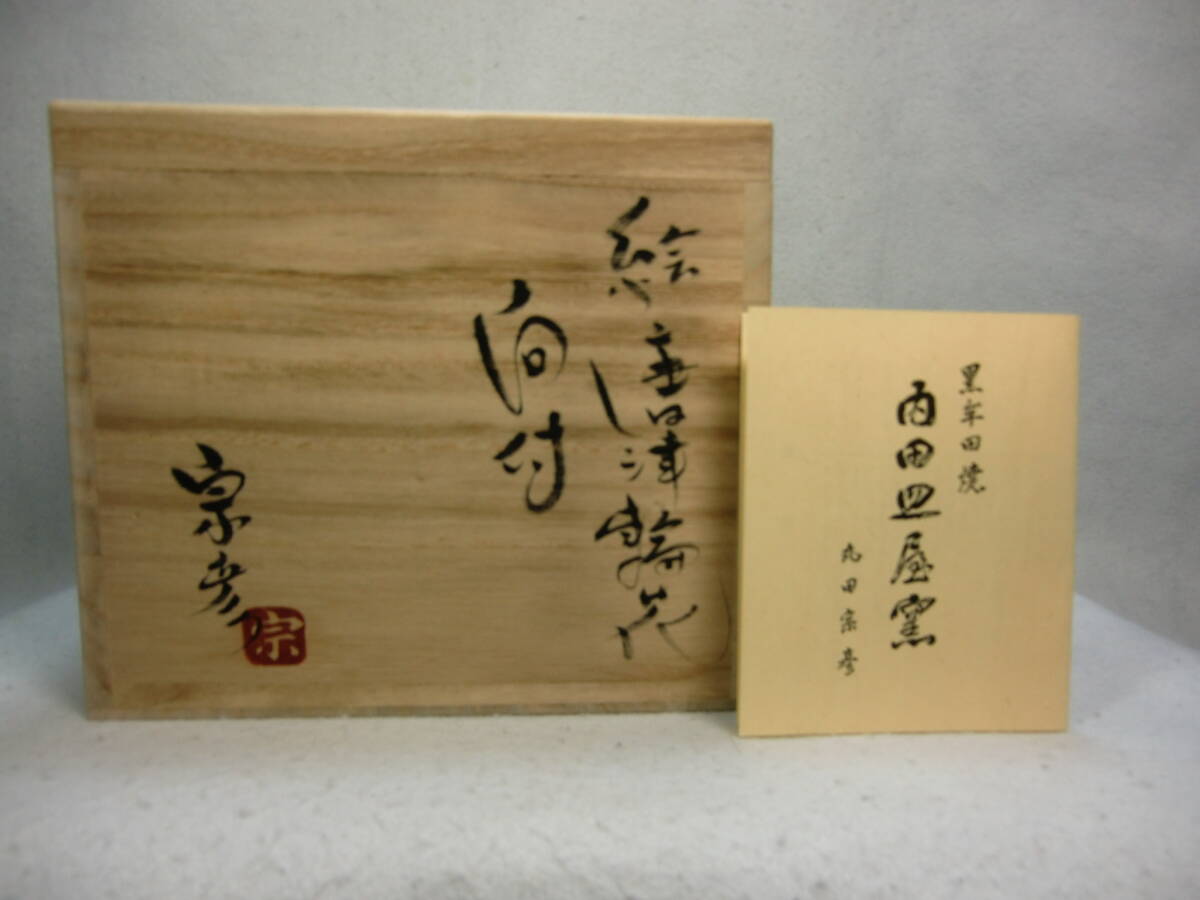 絵唐津輪花
向付
宗彦
宗
黒牟田焼
内田皿屋窯
丸田宗彦